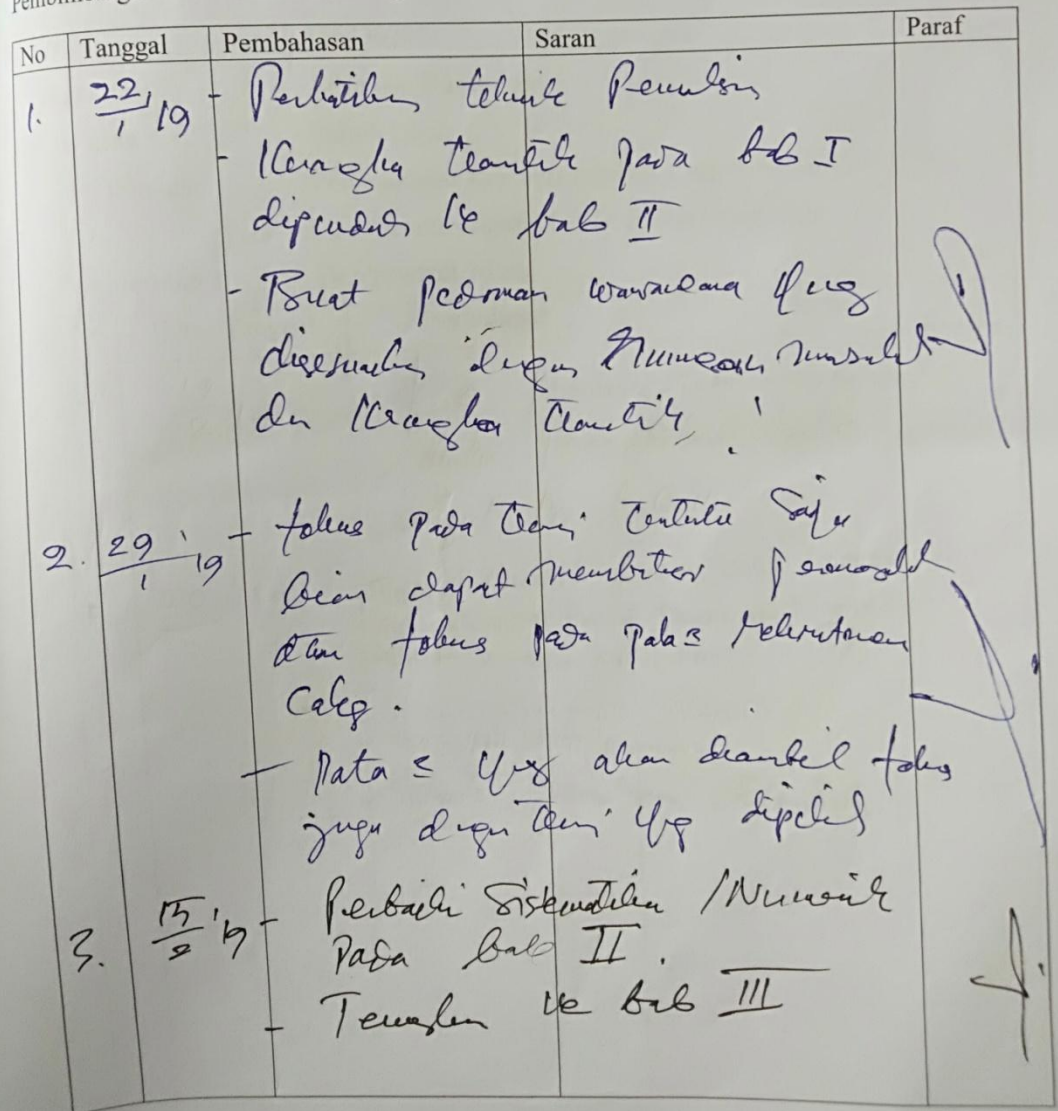 No Tanggal Pembahasan Saran Paraf
1. 22/1 19 - Perhatikan teknik Penulisan
- Kerangka teoritik pada bab I
dipindah ke bab II
- Buat pedoman wawancara yang
disesuaikan dengan rumusan masalah
dan Kerangka teoritik
2. 29/1 19 - fokus pada teori tertentu saja
dapat membatasi
dan fokus pada pola2 rekrutmen
Caleg.
- Data2 yg akan diambil fokus
juga dengan teori yg dipilih
3. 15/2 19 - Perbaiki Sistematika / Numerik
Pada bab II.
- Teruskan ke bab III